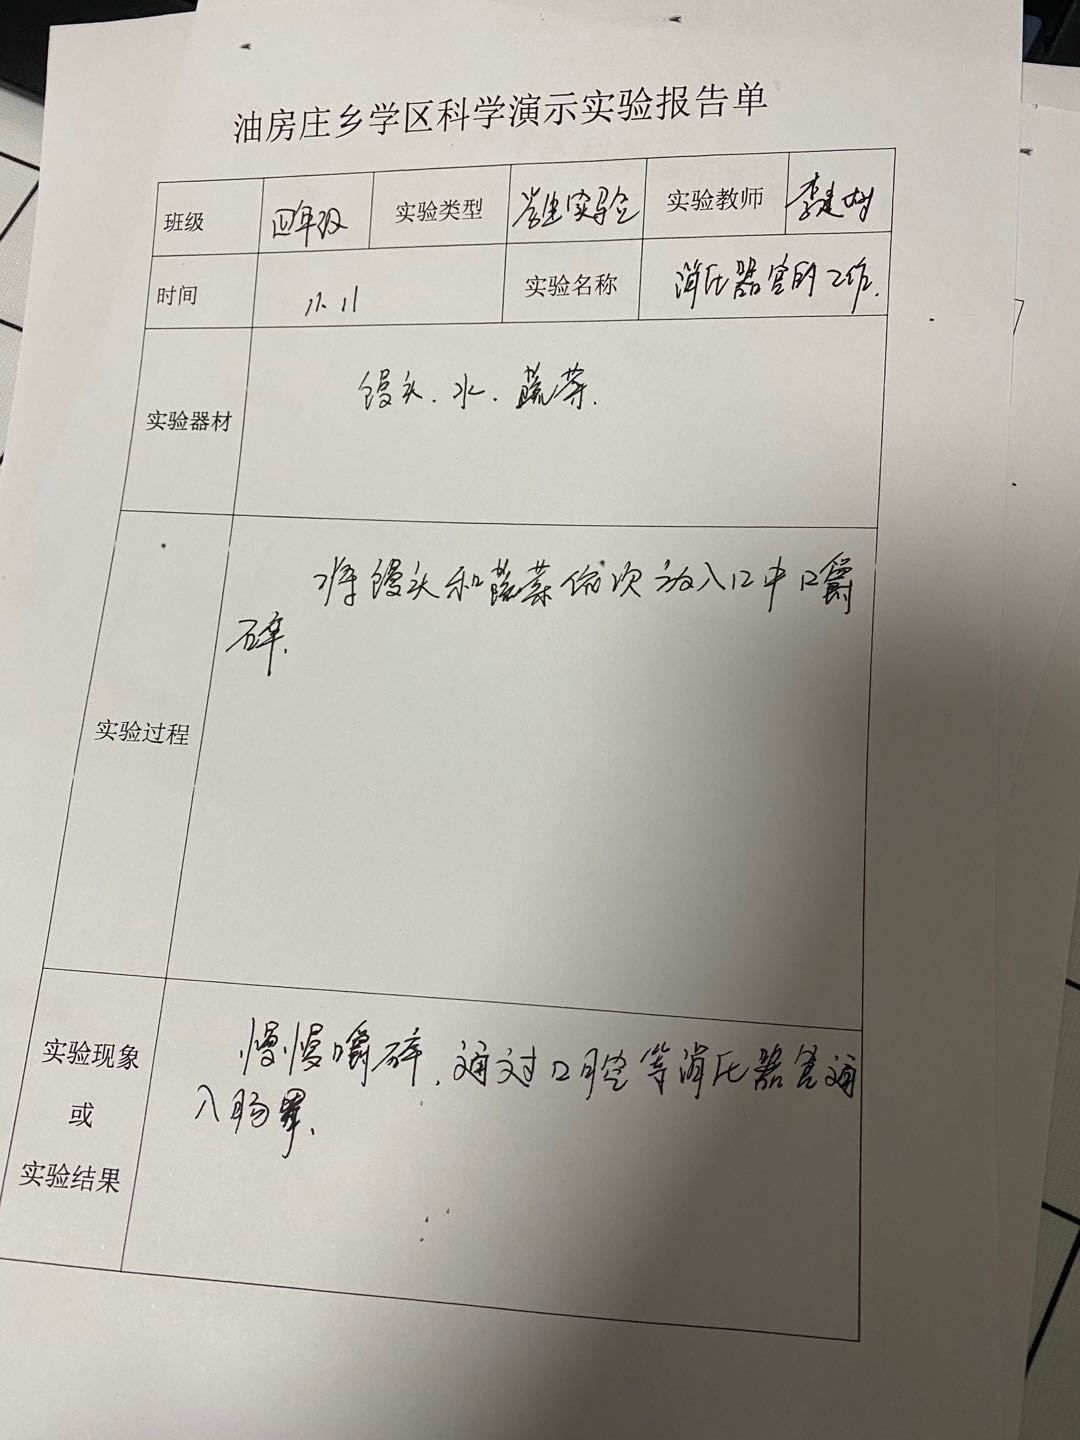 油房庄乡学区科学演示实验报告单
班级 四年级 实验类型 学生实验 实验教师 李建
时间 11.11 实验名称 消化器官的工作.
实验器材 馒头.水.蔬菜.
实验过程 将馒头和蔬菜依次放入口中嚼
碎.
实验现象
或
实验结果
慢慢嚼碎.通过口腔等消化器官通
入肠胃.